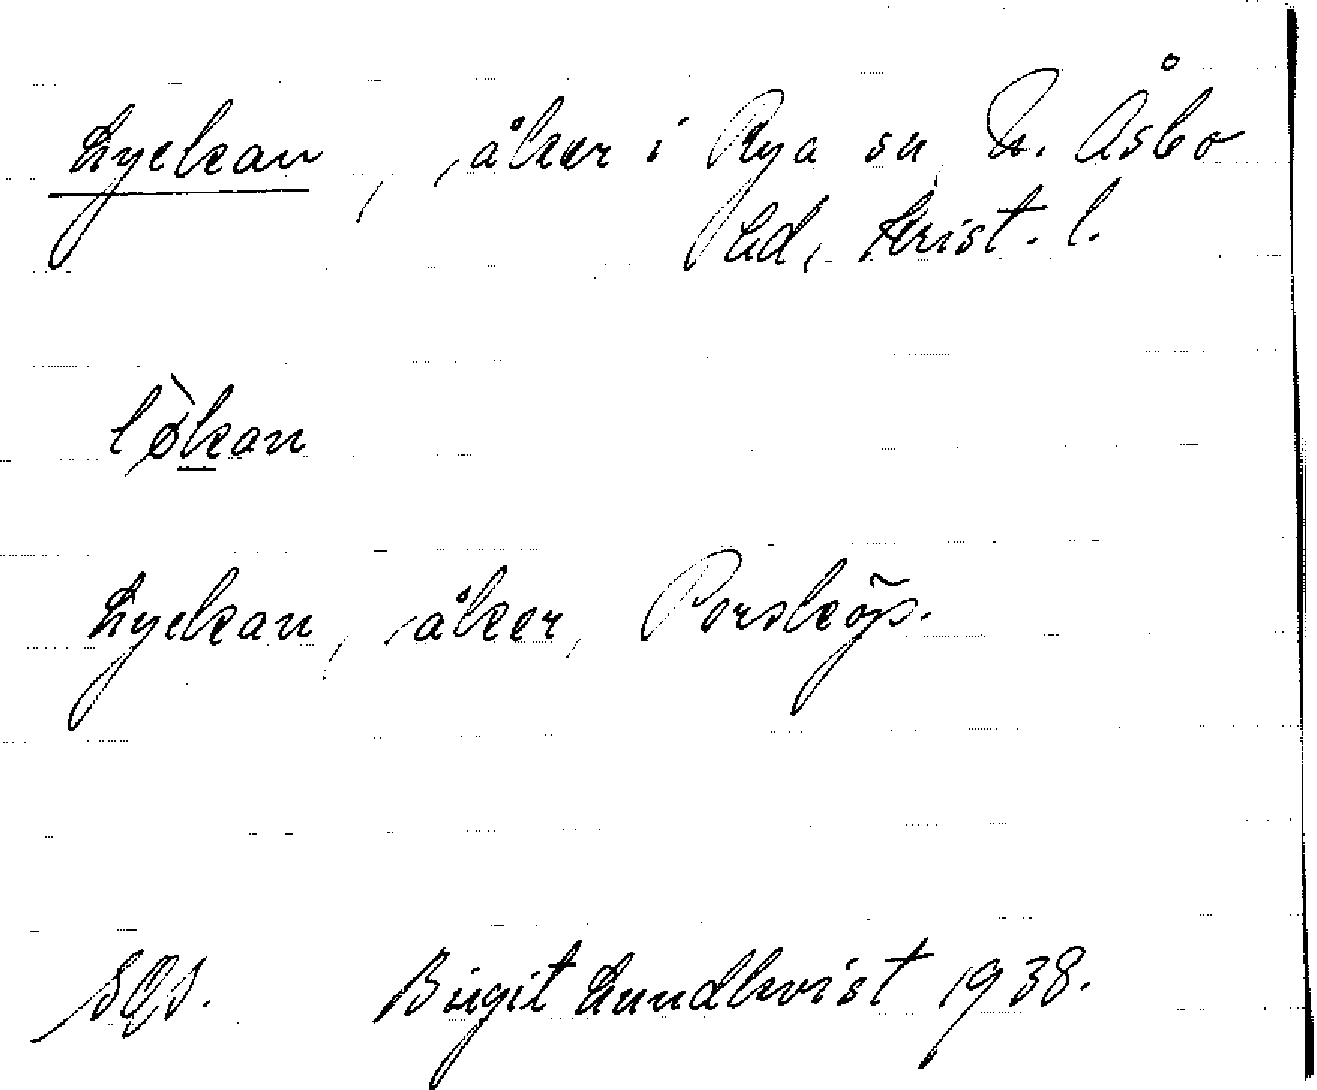 Lyckan, åker i Rya sn, N. Åsbo
hd, Krist. l.
lø̀kan
Lyckan, åker, Porsköp.
Birgit Lundkvist 1938.